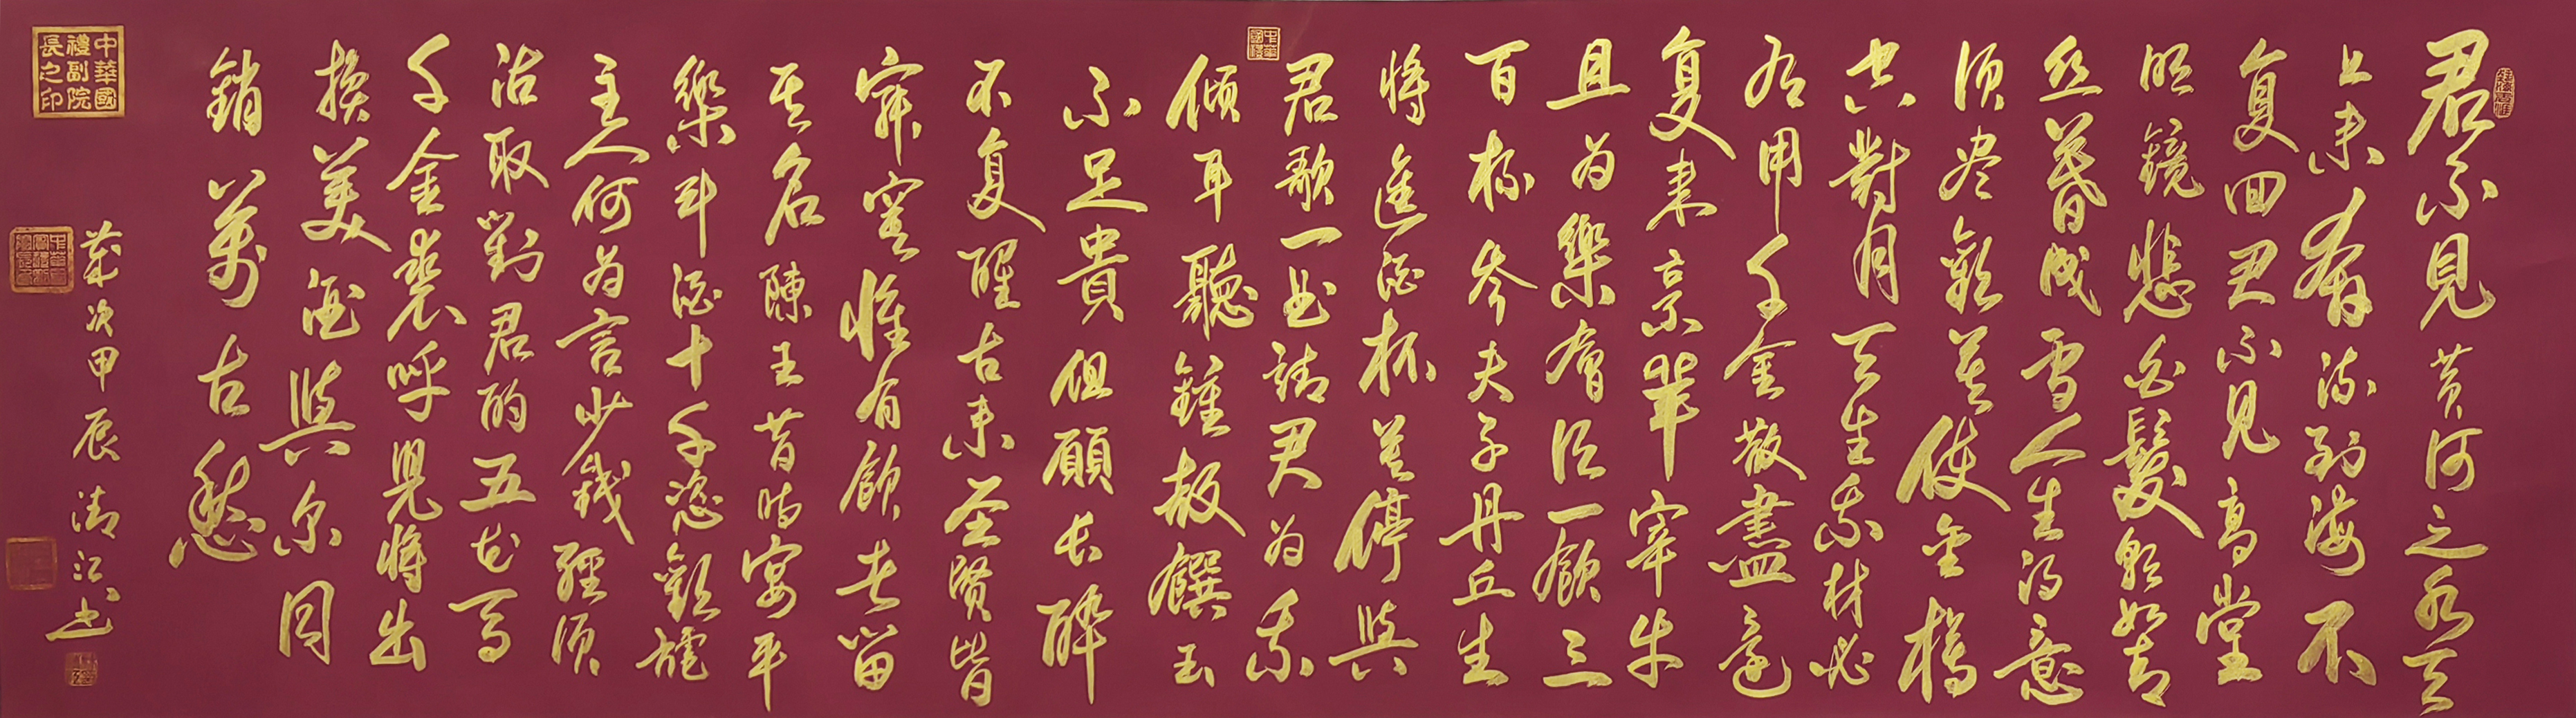 君不見黄河之水天
上来奔流到海不
复回君不見高堂
明鏡悲白髮朝如青
丝暮成雪人生得意
须尽歡莫使金樽
空對月天生我材必
有用千金散盡還
复来烹羊宰牛
且为樂會须一飲三
百杯岑夫子丹丘生
將進酒杯莫停與
君歌一曲請君为我
傾耳聽鐘鼓饌玉
不足貴但願长醉
不复醒古来圣贤皆
寂寞惟有飲者留
其名陳王昔時宴平
樂斗酒十千恣歡謔
主人何为言少錢經须
沽取對君酌五花馬
千金裘呼兒將出
換美酒與尔同
銷萬古愁
歲次甲辰清江书
中華國禮副院長之印